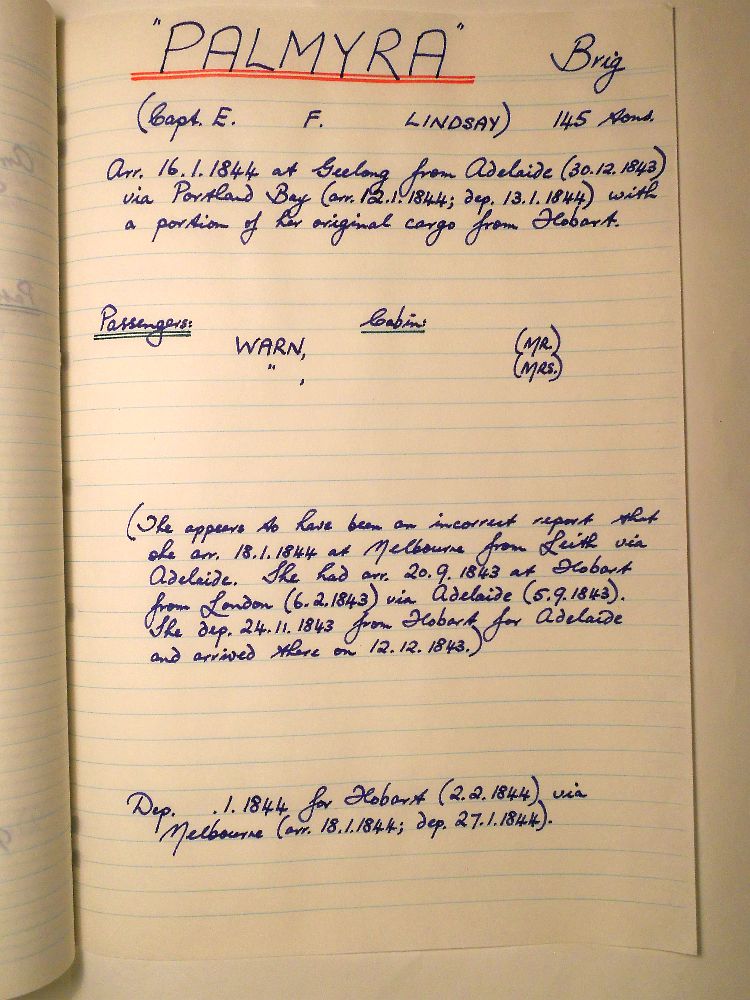 "PALMYRA" Brig
(Capt. E. F. LINDSAY) 145 tons.
Arr. 16.1.1844 at Geelong from Adelaide (30.12.1843)
via Portland Bay (arr. 12.1.1844; dep. 13.1.1844) with
a portion of her original cargo from Hobart.
Passengers: Cabin:
WARN, (MR.)
" , (MRS.)
(The appears to have been an incorrect report that
she arr. 18.1.1844 at Melbourne from Leith via
Adelaide. She had arr. 20.9.1843 at Hobart
from London (6.2.1843) via Adelaide (5.9.1843).
She dep. 24.11.1843 from Hobart for Adelaide
and arrived there on 12.12.1843.)
Dep. .1.1844 for Hobart (2.2.1844) via
Melbourne (arr. 18.1.1844; dep. 27.1.1844).